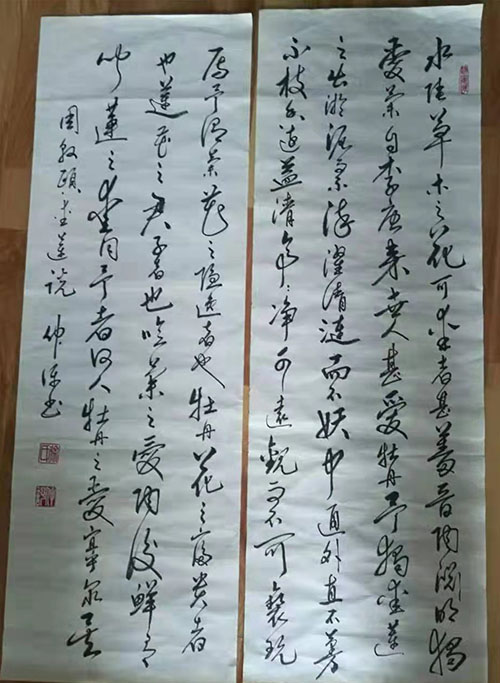 水陸草木之花可愛者甚蕃晋陶淵明獨
愛菊自李唐来世人甚愛牡丹予獨愛蓮
之出淤泥不染濯清漣而不妖中通外直不蔓
不枝香遠益清亭亭净可遠觀而不可褻玩
焉予謂菊花之隱逸者也牡丹花之富貴者
也蓮花之君子者也噫菊之愛陶後鮮有
聞蓮之愛同予者何人牡丹之愛宜乎衆矣
周敦頤愛蓮説 仲書